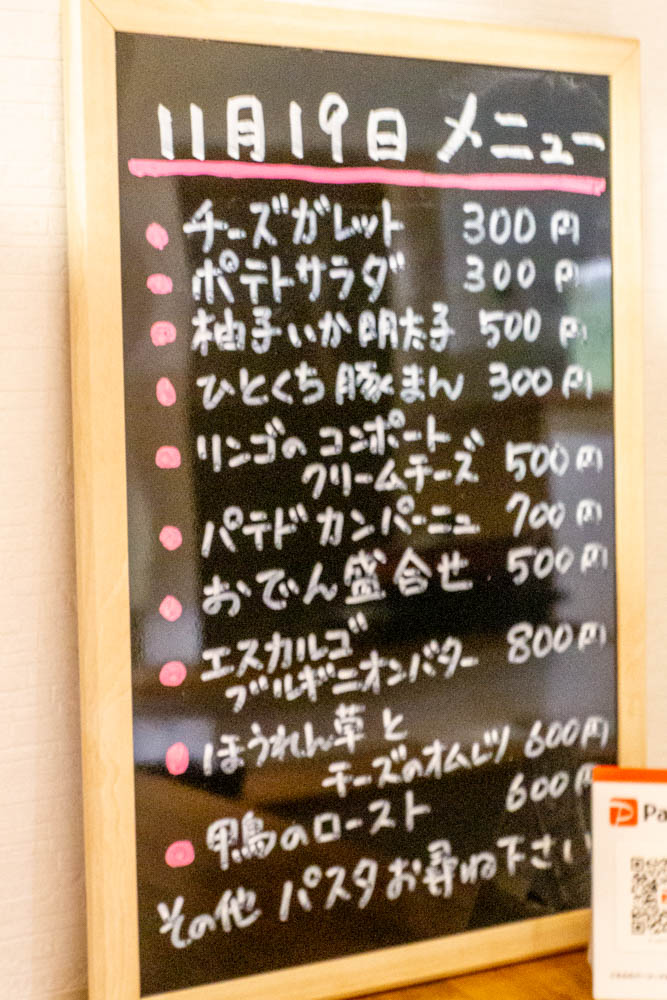 11月19日 メニュー
チーズガレット 300円
ポテトサラダ 300円
柚子いか明太子 500円
ひとくち豚まん 300円
リンゴの コンポート
クリームチーズ 500円
パテド カンパーニュ 700円
おでん盛合せ 500円
エスカルゴ
ブルギニオンバター 800円
ほうれん草と
チーズのオムレツ 600円
鴨のロースト 600円
その他 パスタお尋ね下さい
Pa